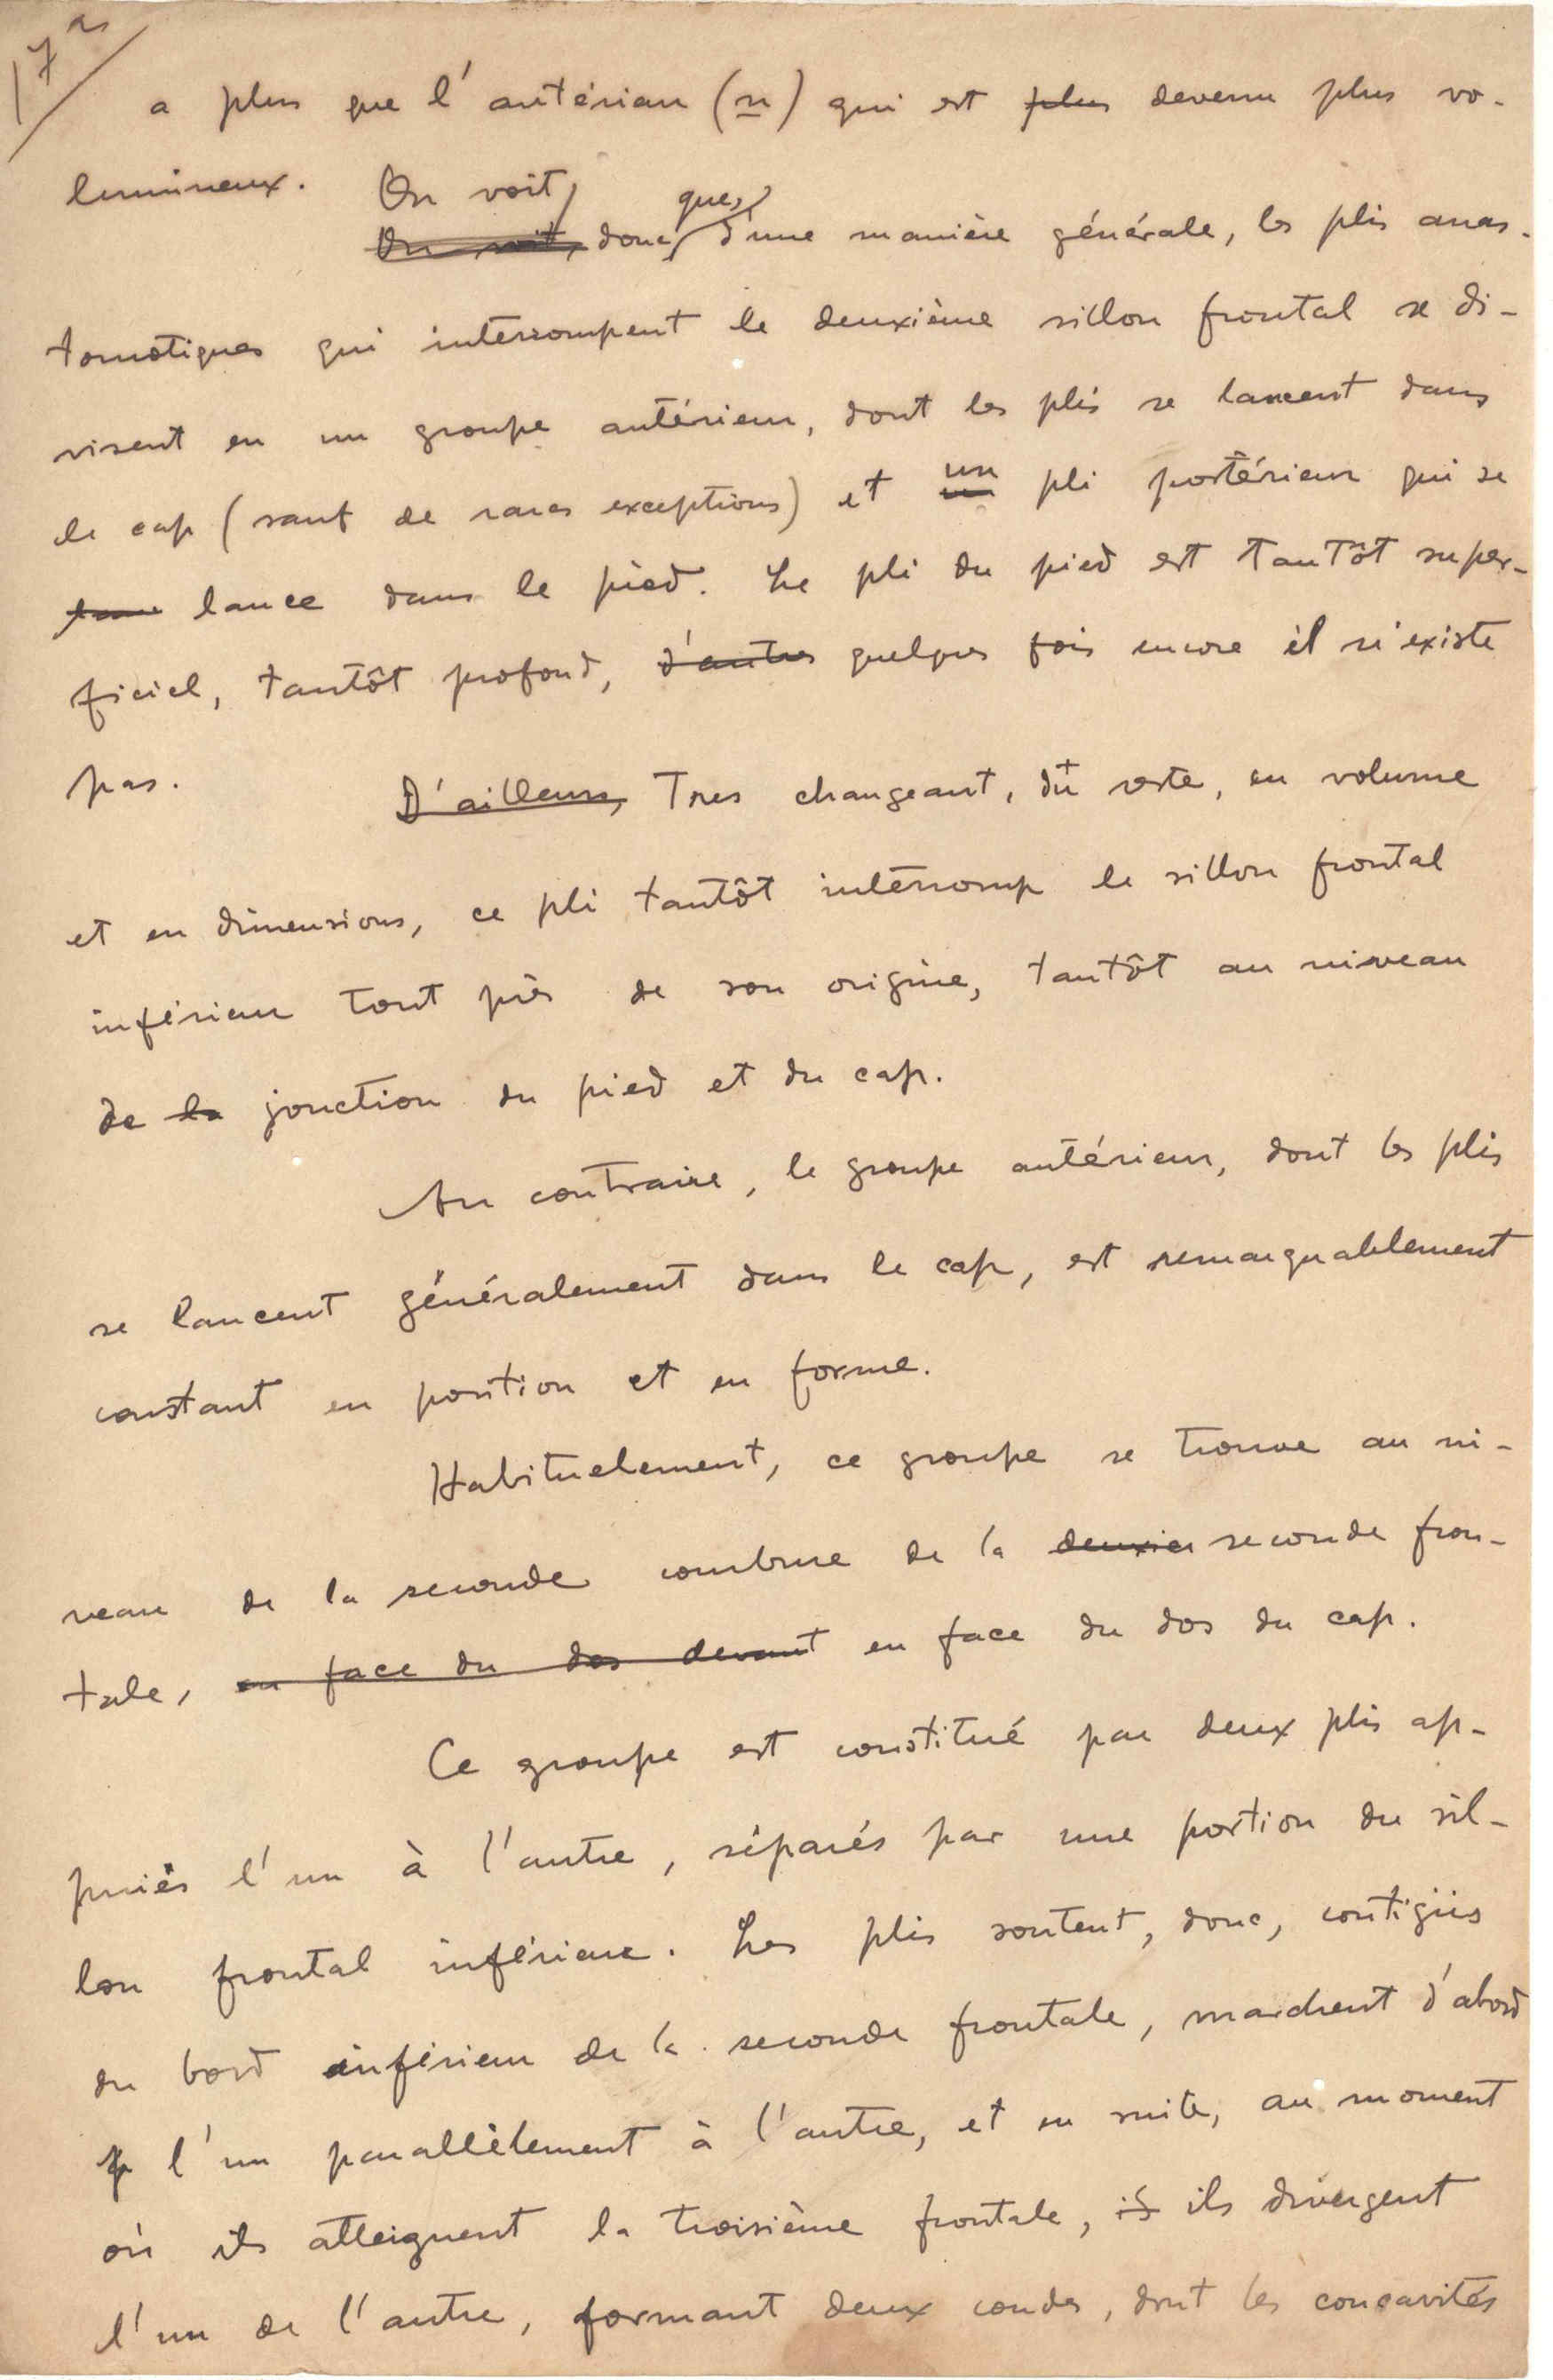 a plus que l'antérieur (n) qui est plus devenu plus vo-
lumineux. On voit, que,
On voit, donc, d'une manière générale, les plis anas-
tomotiques qui interrompent le deuxième sillon frontal se di-
visent en un groupe antérieur, dont les plis se lancent dans
le cap (sauf de rares exceptions) et un pli postérieur qui se
lance dans le pied. Le pli du pied est tantôt super-
ficiel, tantôt profond, d'autres quelques fois encore il n'existe
pas. D'ailleurs, Tres changeant, du reste, en volume
et en dimensions, ce pli tantôt interromp le sillon frontal
inférieur tout près de son origine, tantôt au niveau
de la jonction du pied et du cap.
Au contraire, le groupe antérieur, dont les plis
se lancent généralement dans le cap, est remarquablement
constant en position et en forme.
Habituelement, ce groupe se trouve au ni-
veau de la seconde courbure de la deuxièm seconde fron-
tale, en face du dos devant en face du dos du cap.
Ce groupe est constitué par deux plis ap-
puiés l'un à l'autre, séparés par une portion du sil-
lon frontal inférieur. Les plis sortent, donc, contigüs
du bord inférieur de la seconde frontale, marchent d'abord
p l'un parallèlement à l'autre, et en suite, au moment
où ils atteignent la troisième frontale, is ils divergent
l'un de l'autre, formant deux coudes, dont les concavités